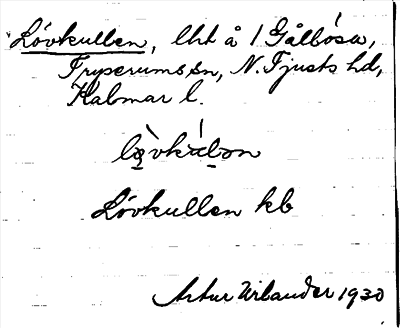 Lövkullen, lht å 1 Gålbósa,
Fryserums sn, N. Tjusts hd,
Kalmar l.
lø̀vkúlən
Lövkullen kb
Artur Virlander 1930